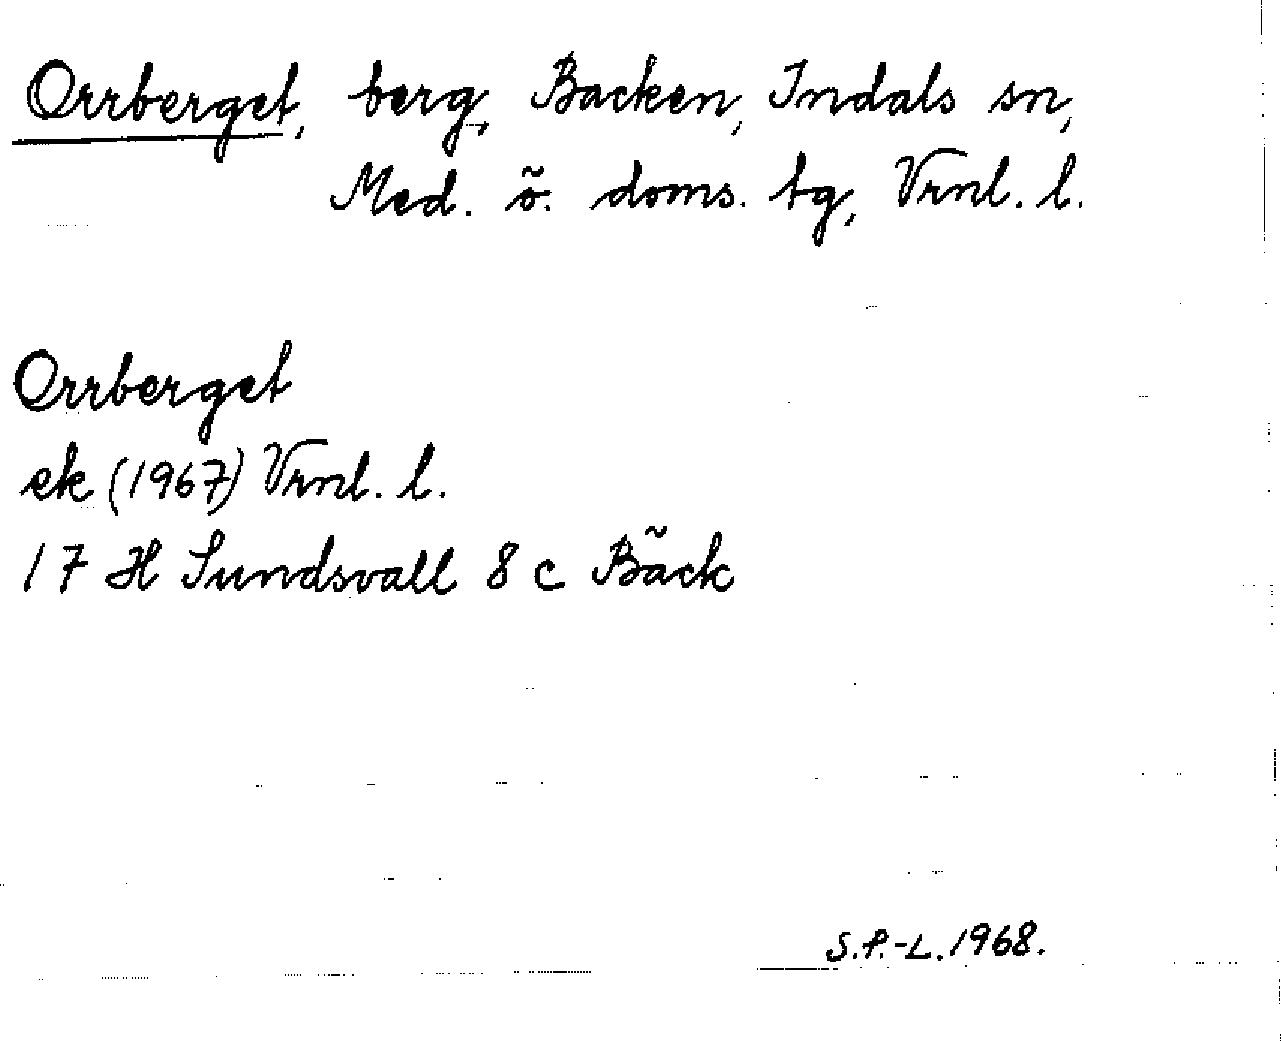 Orrberget, berg, Backen, Indals sn,
Med. ö. doms. tg, Vrnl. l.
Orrberget
ek (1967) Vrnl. l.
17 H Sundsvall 8 c Bäck
S.P.-L. 1968.